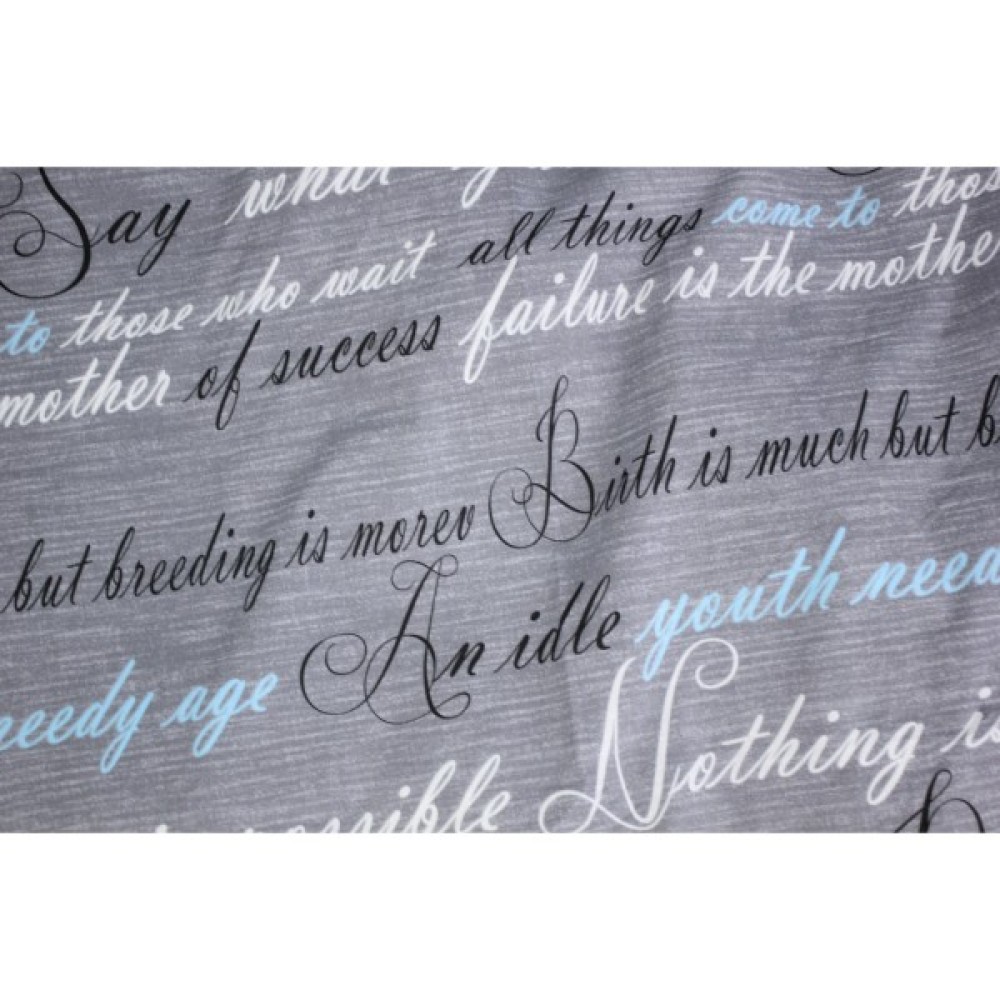 Say what
to those who wait all things come to thos
mother of success failure is the mothe
but breeding is morev Birth is much but b
needy age An idle youth need
possible Nothing is